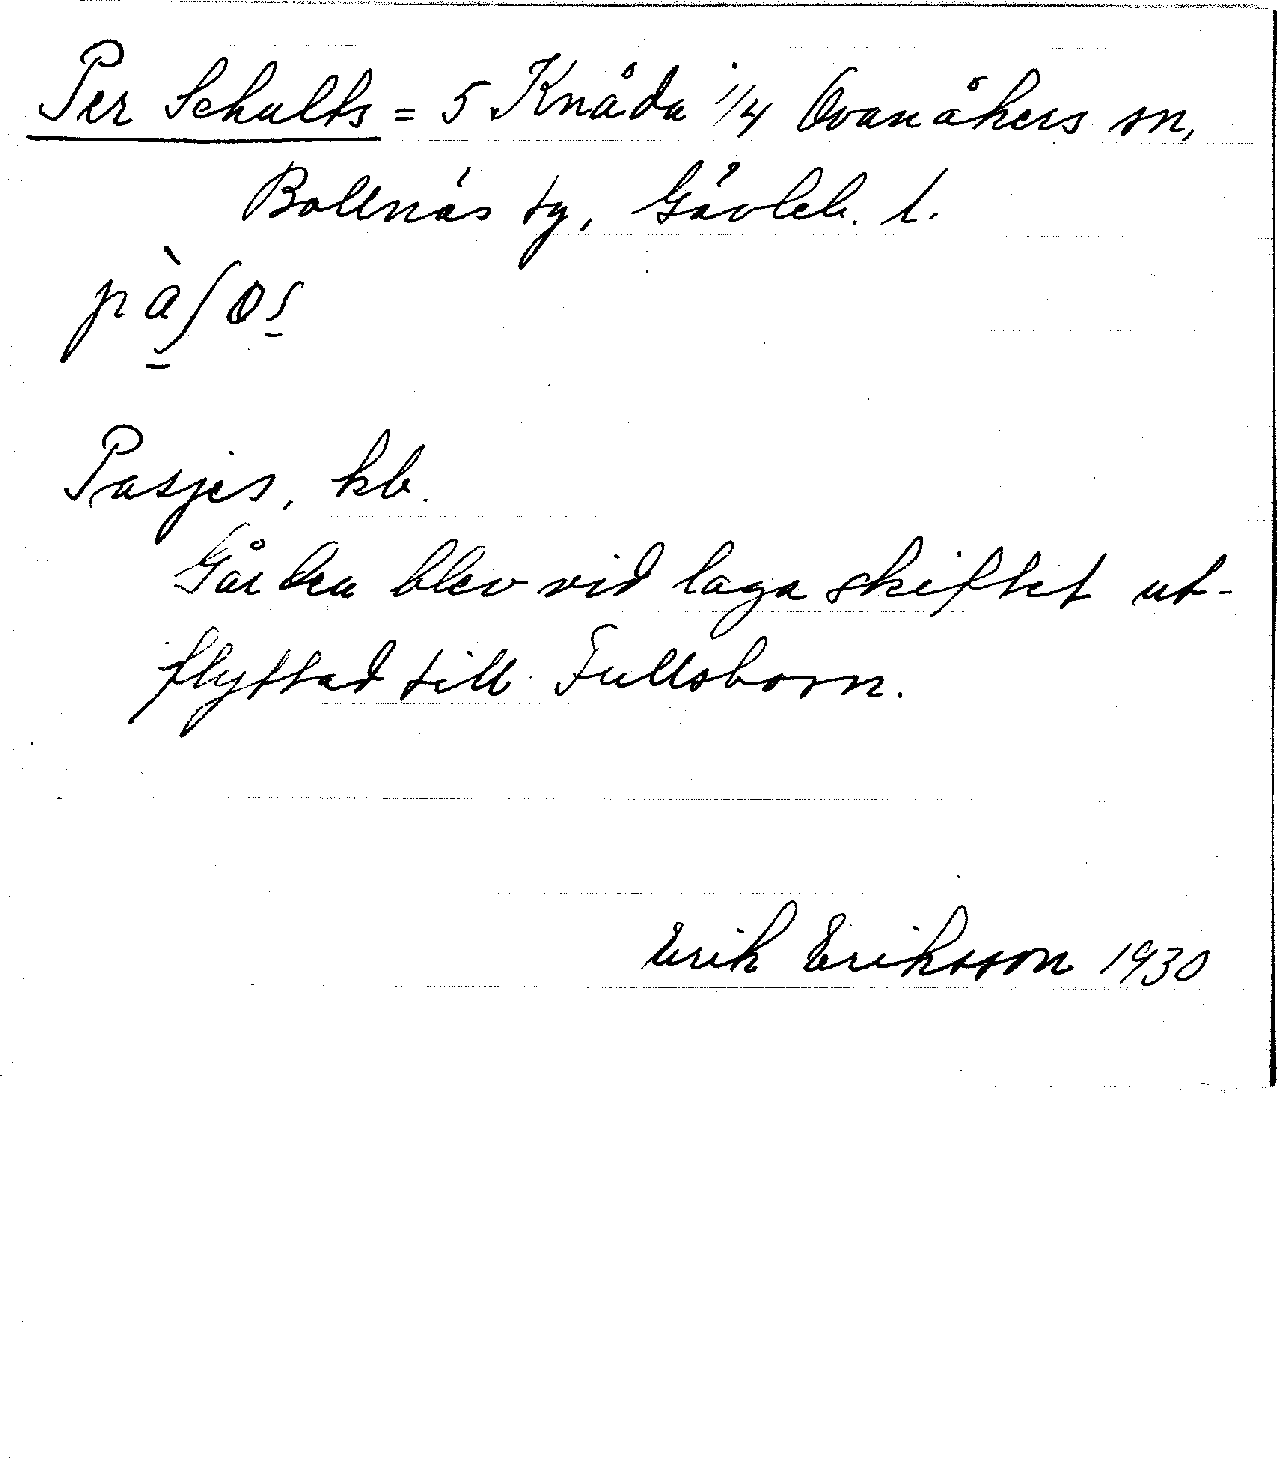 Per Schults = 5 Knåda 1/4 Ovanåkers sn,
Bollnäs tg, Gävleb. l.
Pasjes, kb.
Gården blev vid laga skiftet ut-
flyttad till Tullsborn.
Erik Eriksson 1930